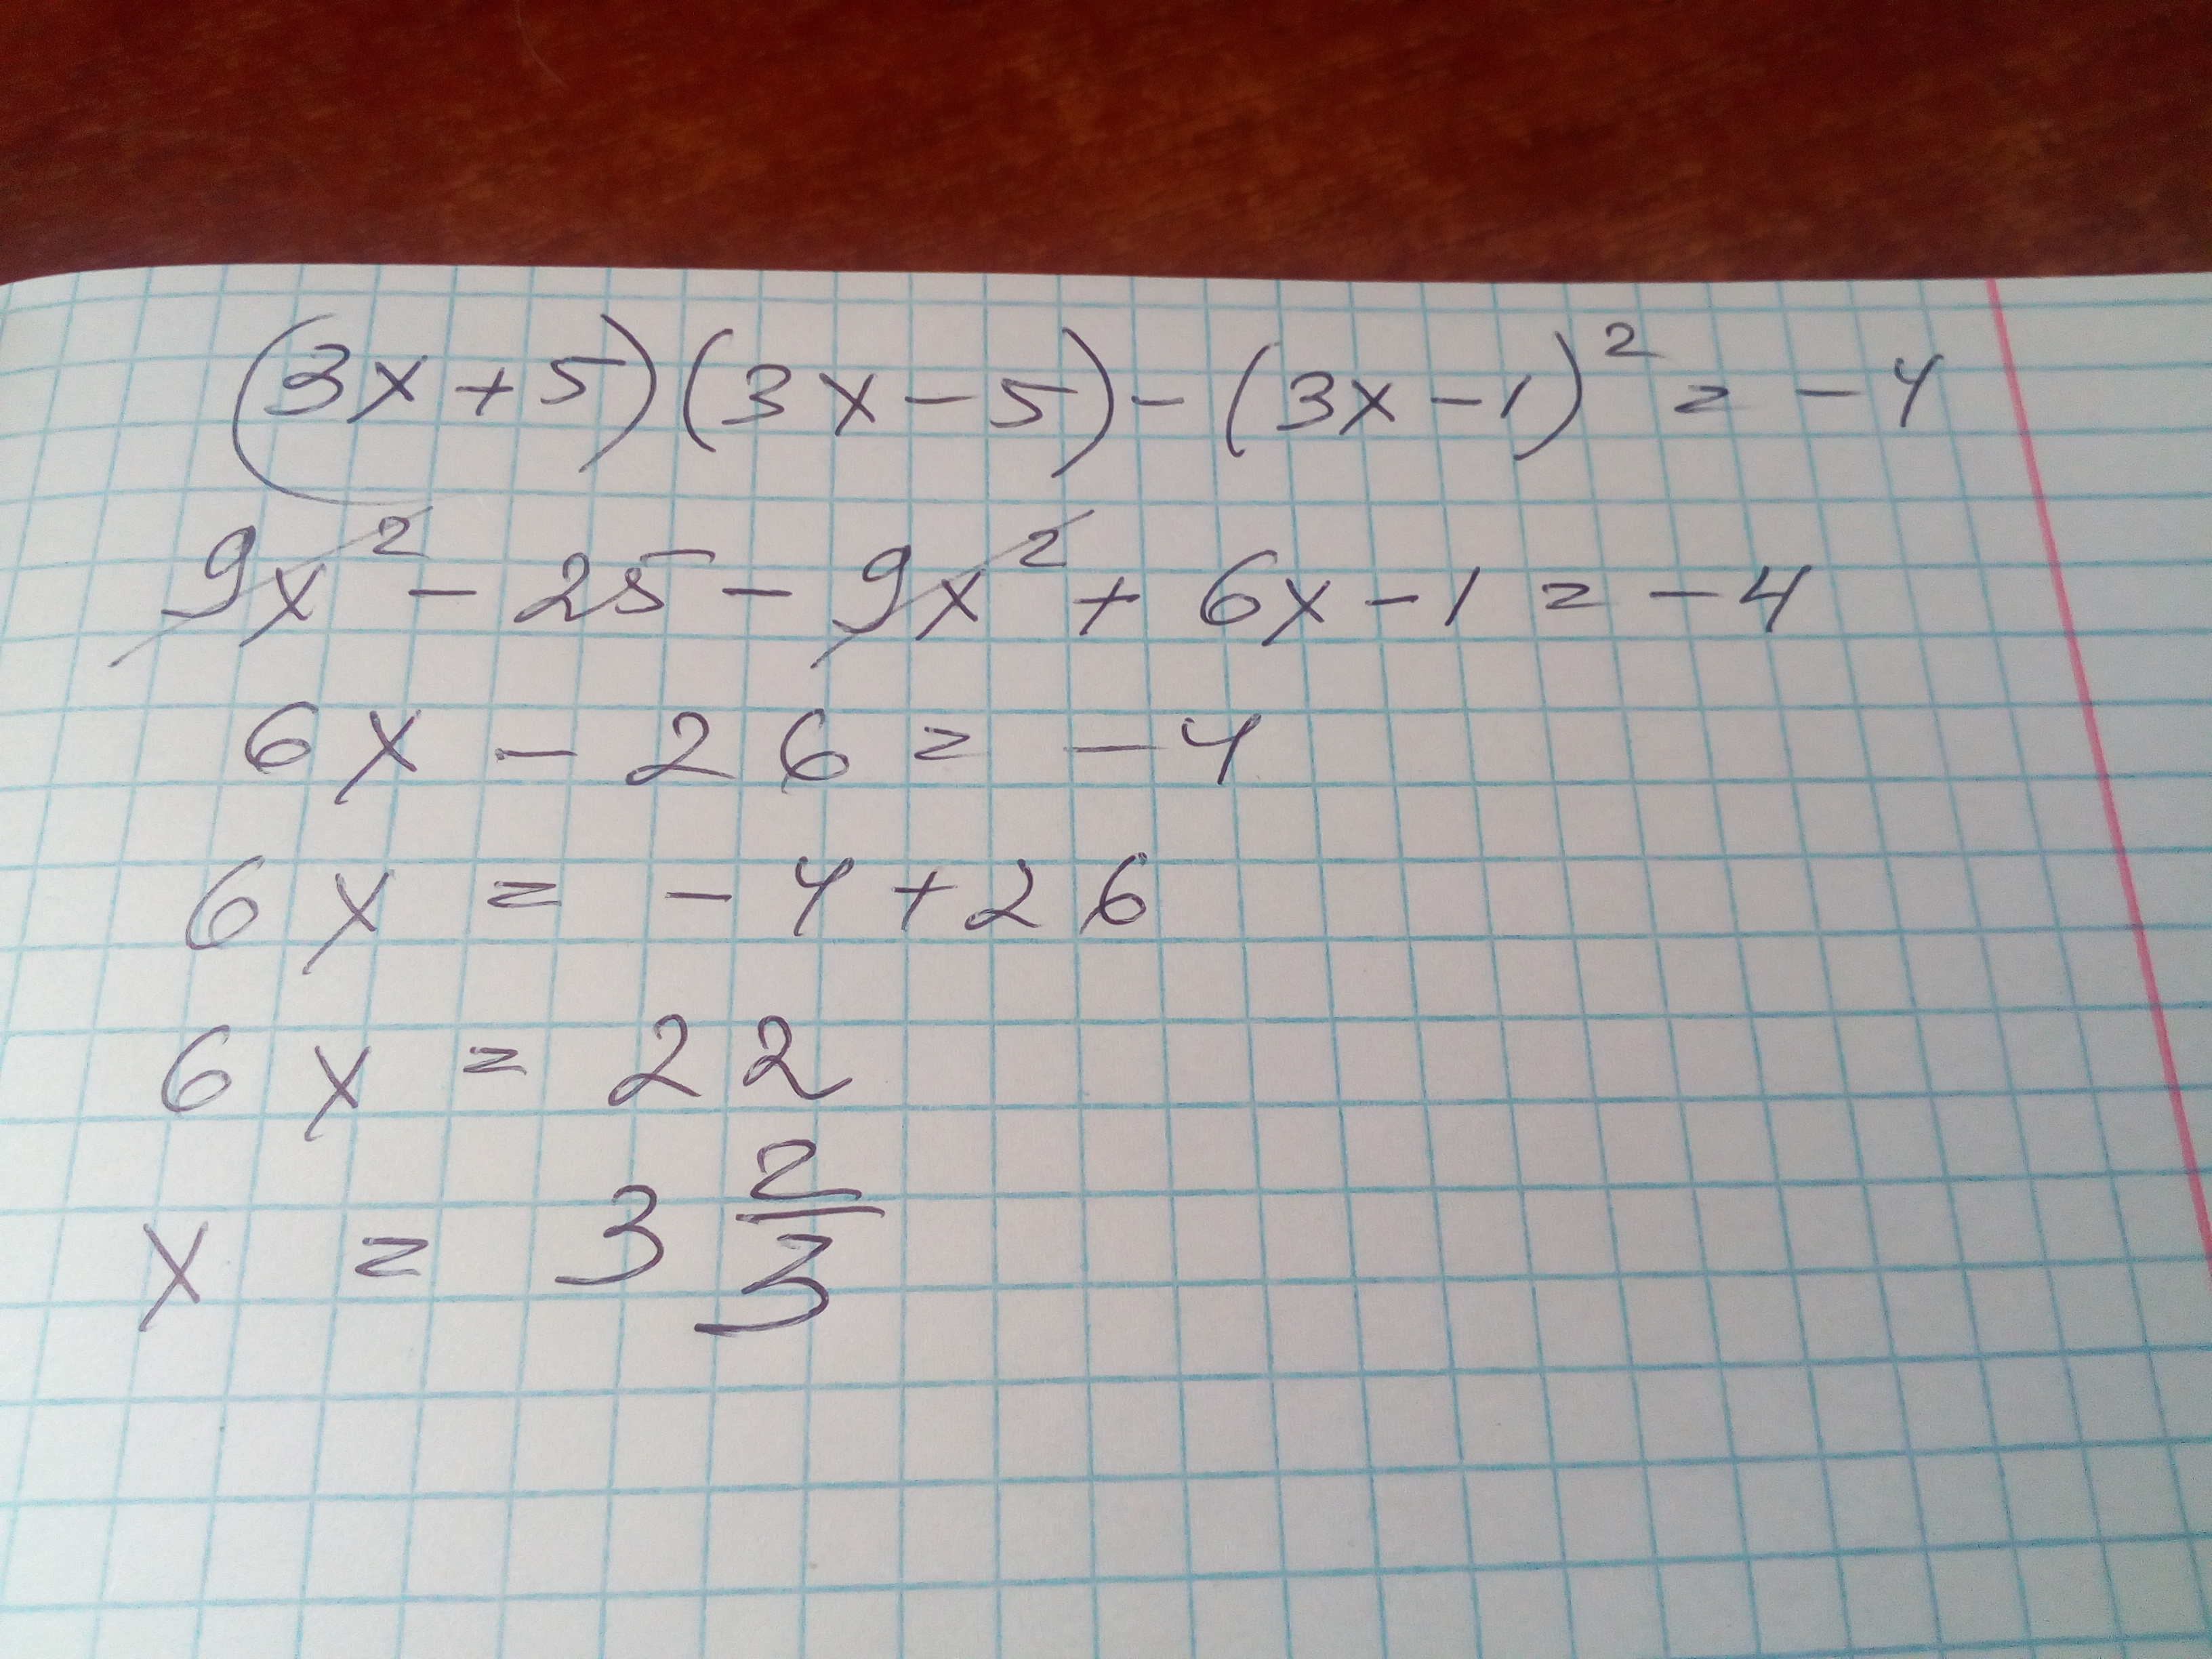 (3x+5)(3x-5)-(3x-1)² = -4
9x² - 25 - 9x² + 6x - 1 = -4
6x - 26 = -4
6x = -4+26
6x = 22
x = 3 2/3